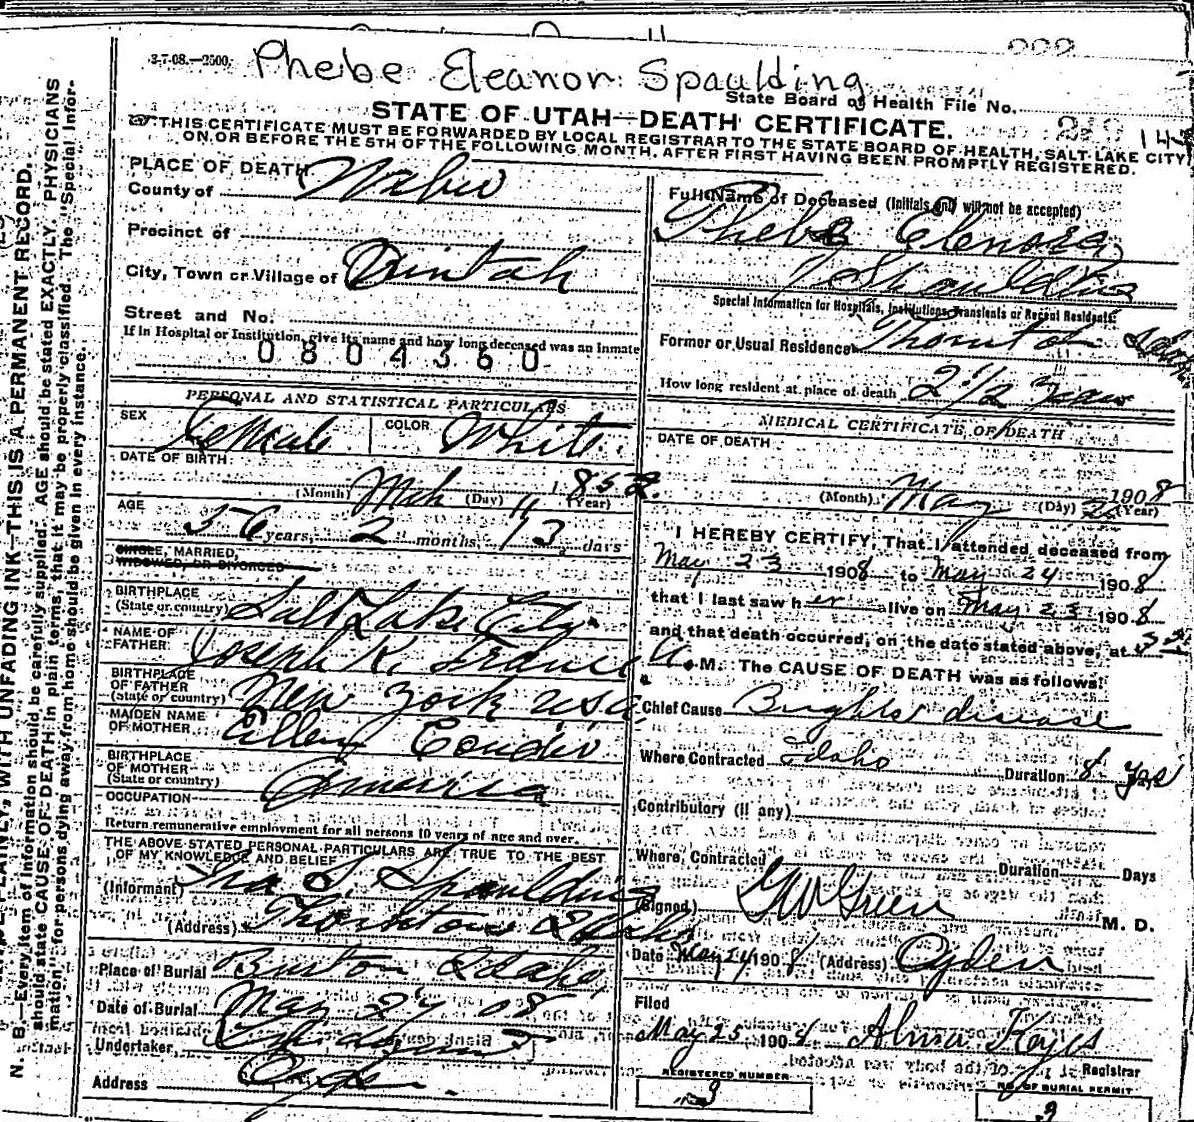 3-7-08.—2500.
Pheibe Eleanor Spaulding
State Board of Health File No.
STATE OF UTAH—DEATH CERTIFICATE.
THIS CERTIFICATE MUST BE FORWARDED BY LOCAL REGISTRAR TO THE STATE BOARD OF HEALTH, SALT LAKE CITY
ON OR BEFORE THE 5TH OF THE FOLLOWING MONTH, AFTER FIRST HAVING BEEN PROMPTLY REGISTERED.
N. B.—Every item of Information should be carefully supplied. AGE should be stated EXACTLY. PHYSICIANS
should state CAUSE OF DEATH in plain terms, that it may be properly classified. The "Special Infor-
mation" for persons dying away from home should be given in every instance.
PLAINLY, WITH UNFADING INK—THIS IS A PERMANENT RECORD.
PLACE OF DEATH
County of Weber
Precinct of
City, Town or Village of Uintah
Street and No.
If in Hospital or Institution, give its name and how long deceased was an Inmate
0804360
PERSONAL AND STATISTICAL PARTICULARS
SEX Female COLOR White
DATE OF BIRTH
(Month) Mch (Day) 11 1852 (Year)
AGE
56 years, 2 months, 13 days
SINGLE, MARRIED,
WIDOWED, OR DIVORCED
BIRTHPLACE
(State or country) Salt Lake City
NAME OF
FATHER Joseph K.
BIRTHPLACE
OF FATHER
(State or country) New York USA
MAIDEN NAME
OF MOTHER Ellen
BIRTHPLACE
OF MOTHER
(State or country) America
OCCUPATION
Return remunerative employment for all persons 10 years of age and over.
THE ABOVE STATED PERSONAL PARTICULARS ARE TRUE TO THE BEST
OF MY KNOWLEDGE AND BELIEF
(Informant) Ira O. Spaulding
(Address) Thornton Idaho
Place of Burial Burton Idaho
Date of Burial May 27 08
Undertaker,
Address Ogden
Full Name of Deceased (Initials only will not be accepted)
Phebe Elenora
Spaulding
Special Information for Hospitals, Institutions, Transients or Recent Residents:
Former or Usual Residence Thornton Idaho
How long resident at place of death 2 1/2
MEDICAL CERTIFICATE OF DEATH
DATE OF DEATH
(Month) May (Day) 1908 (Year)
I HEREBY CERTIFY, That I attended deceased from
May 23 1908 to May 24 1908
that I last saw her alive on May 23 1908
and that death occurred, on the date stated above, at
A.M. The CAUSE OF DEATH was as follows:
Chief Cause Brights disease
Where Contracted Idaho Duration 8 yrs
Contributory (if any)
Where Contracted Duration Days
(Signed) GW Green M. D.
Date May 24 1908 (Address) Ogden
Filed
May 25 1908 Alma Keyes
Registrar
REGISTERED NUMBER
9
NO. OF BURIAL PERMIT
9